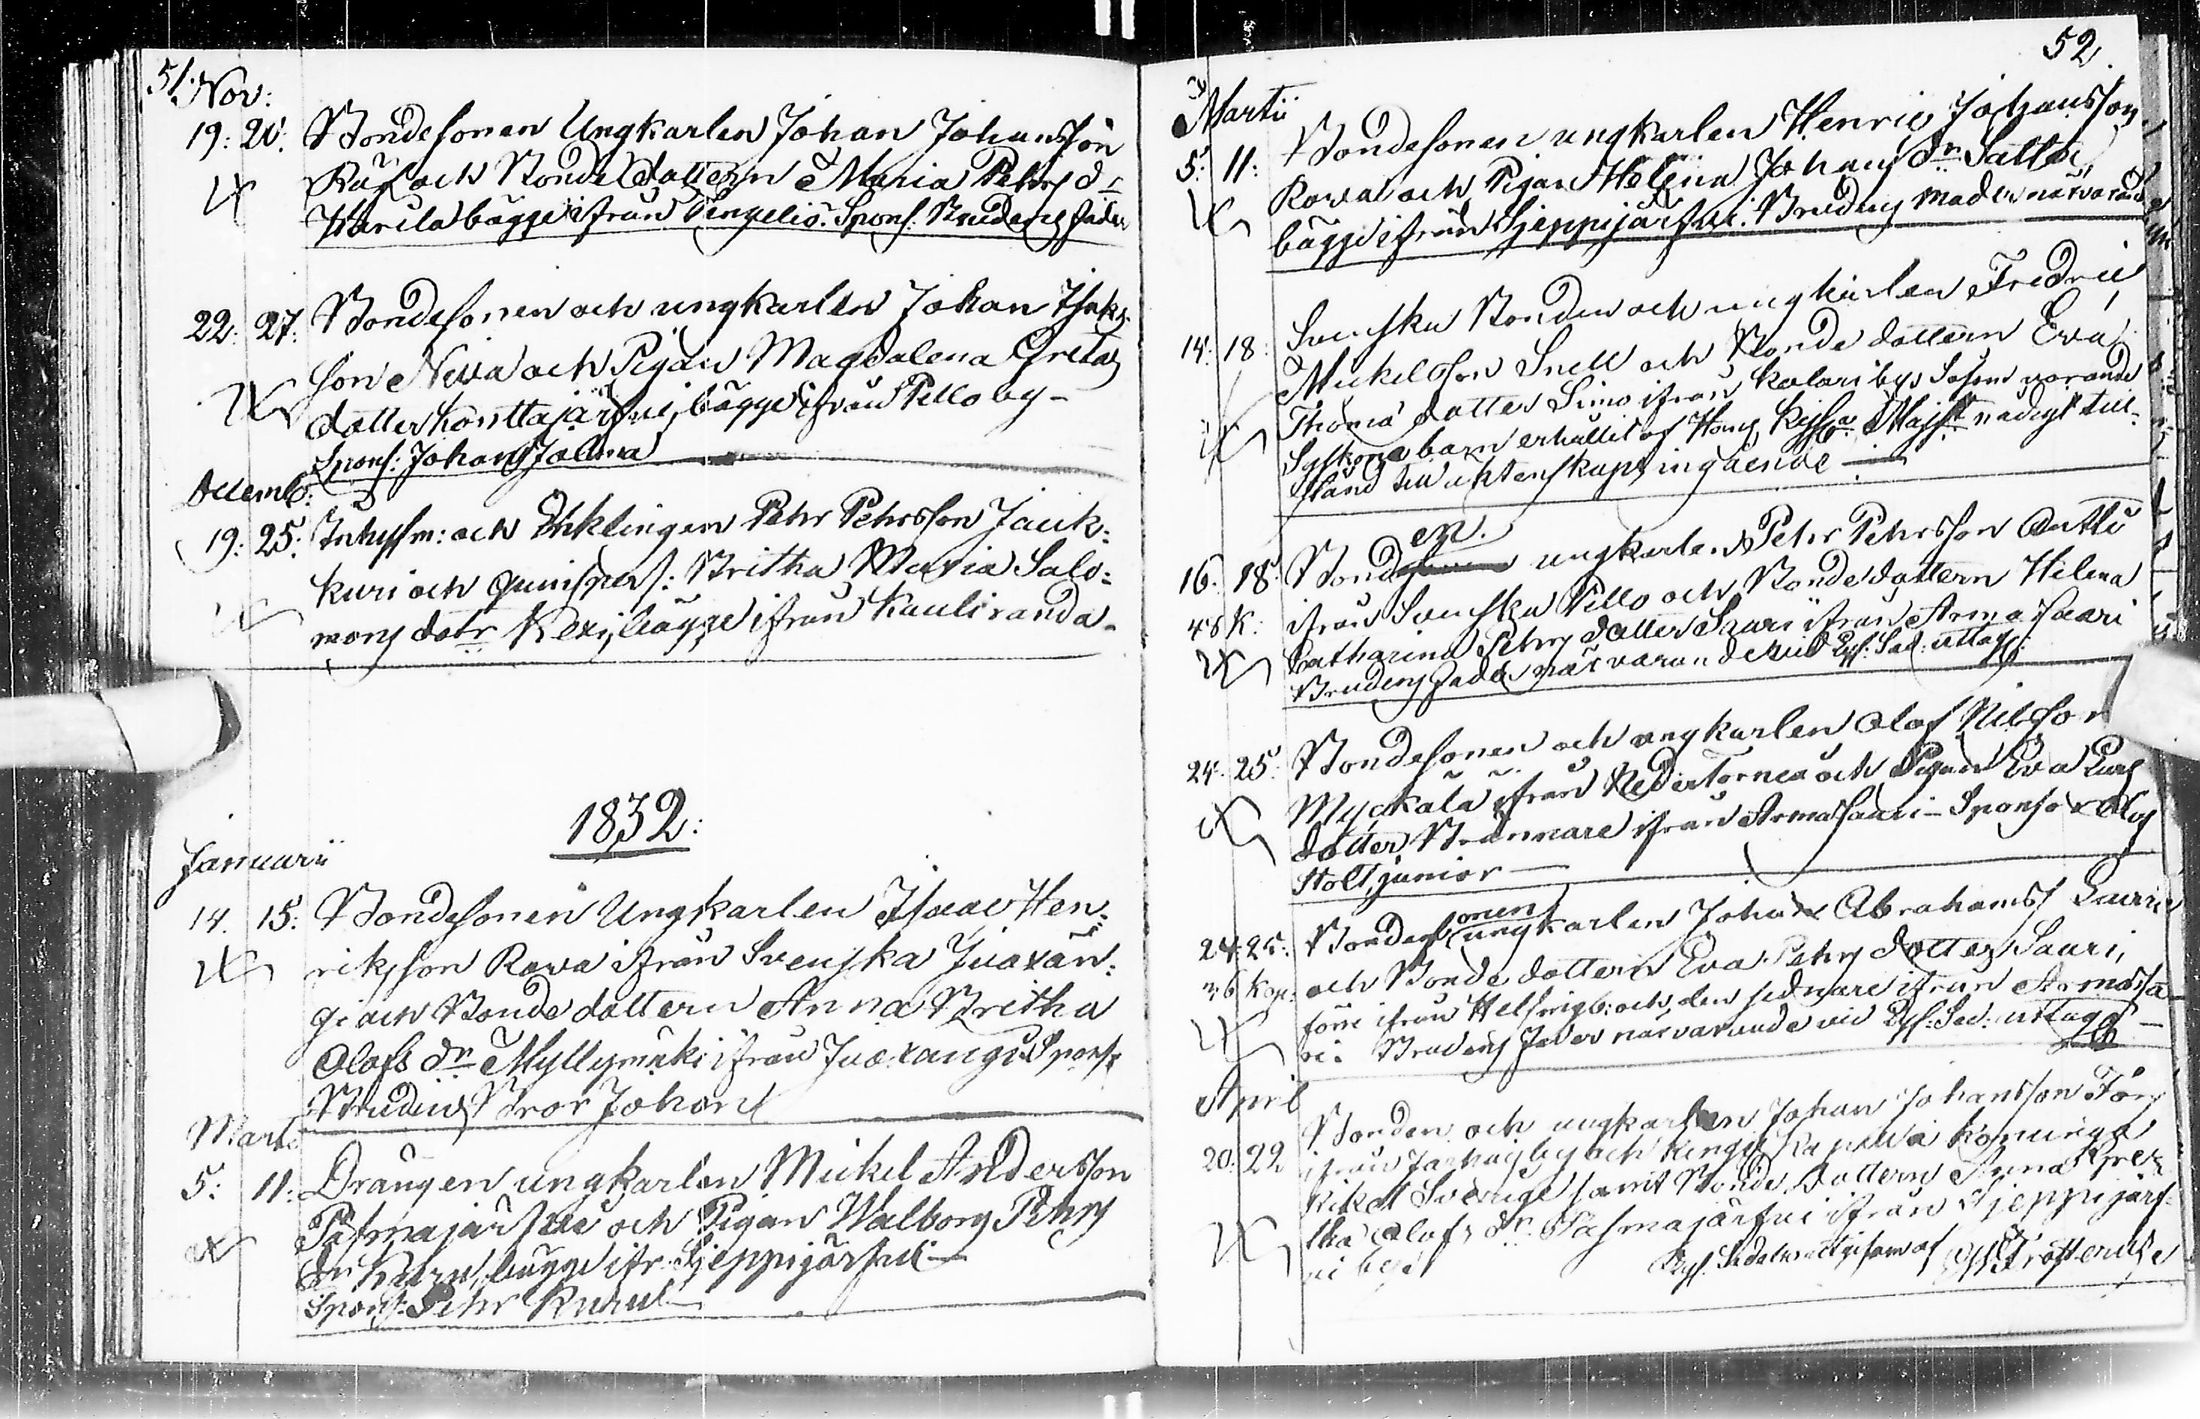 51.
Nov:
19: 20: Bondesonen Ungkarlen Johan Johansson
och Bonde dottern Maria Pehrs dr
Warila bägge ifrån Tengeliö. Spons: Brudens fader
22: 27: Bondesonen och ungkarlen Johan Isaks
son Niva och Pigan Magdalena Greta
dotter Konttajärfvi, bägge ifrån Pello by –
Spons: Johan Jolma
Decemb:
19: 25: Inhysm: och Enklingen Pehr Pehrsson Jauk-
kuri och qvinspers: Britha Maria Salo-
mons dotr Kexi, bägge ifrån Kauliranda –
1832:
Januarii
14. 15: Bondesonen Ungkarlen Isaac Hen-
riksson Rova ifrån Svenska Juoxan-
gi och Bonde dottern Anna Britha
Olofs dr Myllymäki ifrån Juoxangi Spons:
Brudens Bror Johan
Martii
5: 11: Drängen ungkarlen Mickel Andersson
Pasmajärfvi och Pigan Walborg Pehrs
dr bägge ifr: Sjeppijärfvi –
Spons: Pehr
52.
Martii
5: 11: Bondesonen ungkarlen Henric Johansson
Rova och Pigan Helena Johans dr
bägge ifrån Sjeppijärfvi. Brudens moder närvarande
14: 18: Svenska Bonden och ungkarlen Fredric
Mickelsson Snell och Bonde dottern Eva
Thomas dotter Simo ifrån Kolari by, Såsom varande
Syskone barn erhållit af Hans Kejs: Majst: nådigt till-
stånd till äktenskaps ingående –
en.
16. 18: Bond ungkarlen Pehr Pehrsson Antti
48 K: ifrån Svenska Pello och Bonde dottern Helena
Catharina Pehrs dotter Saari ifrån Armasaari
Brudens fader närvarande vid Lys: Sed: uttag:
24: 25: Bondesonen och ungkarlen Olof Nilsson
Myckälä ifrån Neder Torneå och Pigan Eva Lars
dotter Brännare ifrån Armassaari – Sponsor Olof
Stolt, junior –
24. 25: Bondesonen ungkarlen Johan Abrahamss Lauri
36 kop: och Bonde dottern Eva Pehrs dotter Saari,
förre ifrån Helsingb: och den sednare ifrån Armassa-
ri: Brudens fader närvarande vid Lys: Sed: uttag –
April
20. 22 Bonden och ungkarlen Johan Johansson Fors
ifrån by och Kengis Kapell i Konunga
Riket Sverige samt Bonde Dottern Anna Gre-
tha Olofs dr Pasmajärfvi ifrån Sjeppijärf-
vi by:
Lys: Sedeln utgifven af